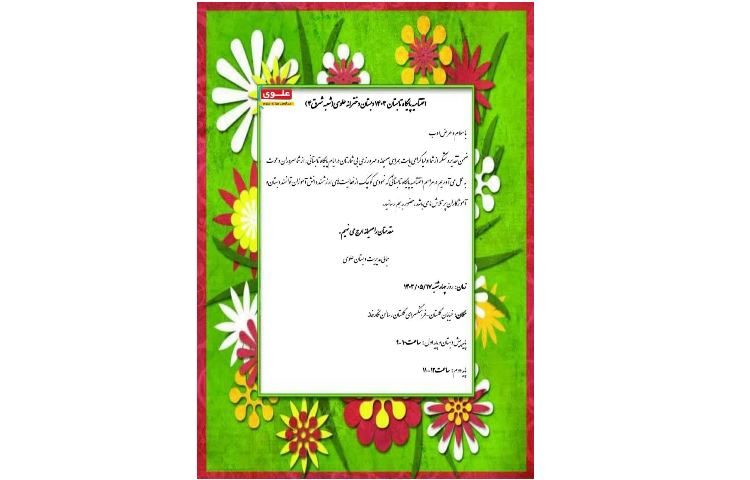 علوی
اختتامیه پایگاه تابستان ۱۴۰۳ دبستان دخترانه علوی (شعبه شرق ۲)
با سلام و عرض ادب
ضمن تقدیر و تشکر از شما اولیا گرامی بابت همراهی صمیمانه و مهرورزی بی شمارتان در ایام پایگاه تابستانی، از شما سروران دعوت
به عمل می آوریم در مراسم اختتامیه پایگاه تابستانی که نمودی کوچک از فعالیت های ارزشمند دانش آموزان توانمند دبستان و
آموزگاران پر تلاش می باشد، حضور بهم رسانید.
مقدمتان را صمیمانه ارج می نهیم.
مدیریت دبستان علوی
زمان: روز چهارشنبه ۱۴۰۳/۰۵/۱۷
مکان: خیابان گلستان - فرهنگسرای گلستان سالن نگارخانه
پایه پیش دبستان و پایه اول: ساعت ۱۰-۹
پایه دوم: ساعت ۱۲-۱۱